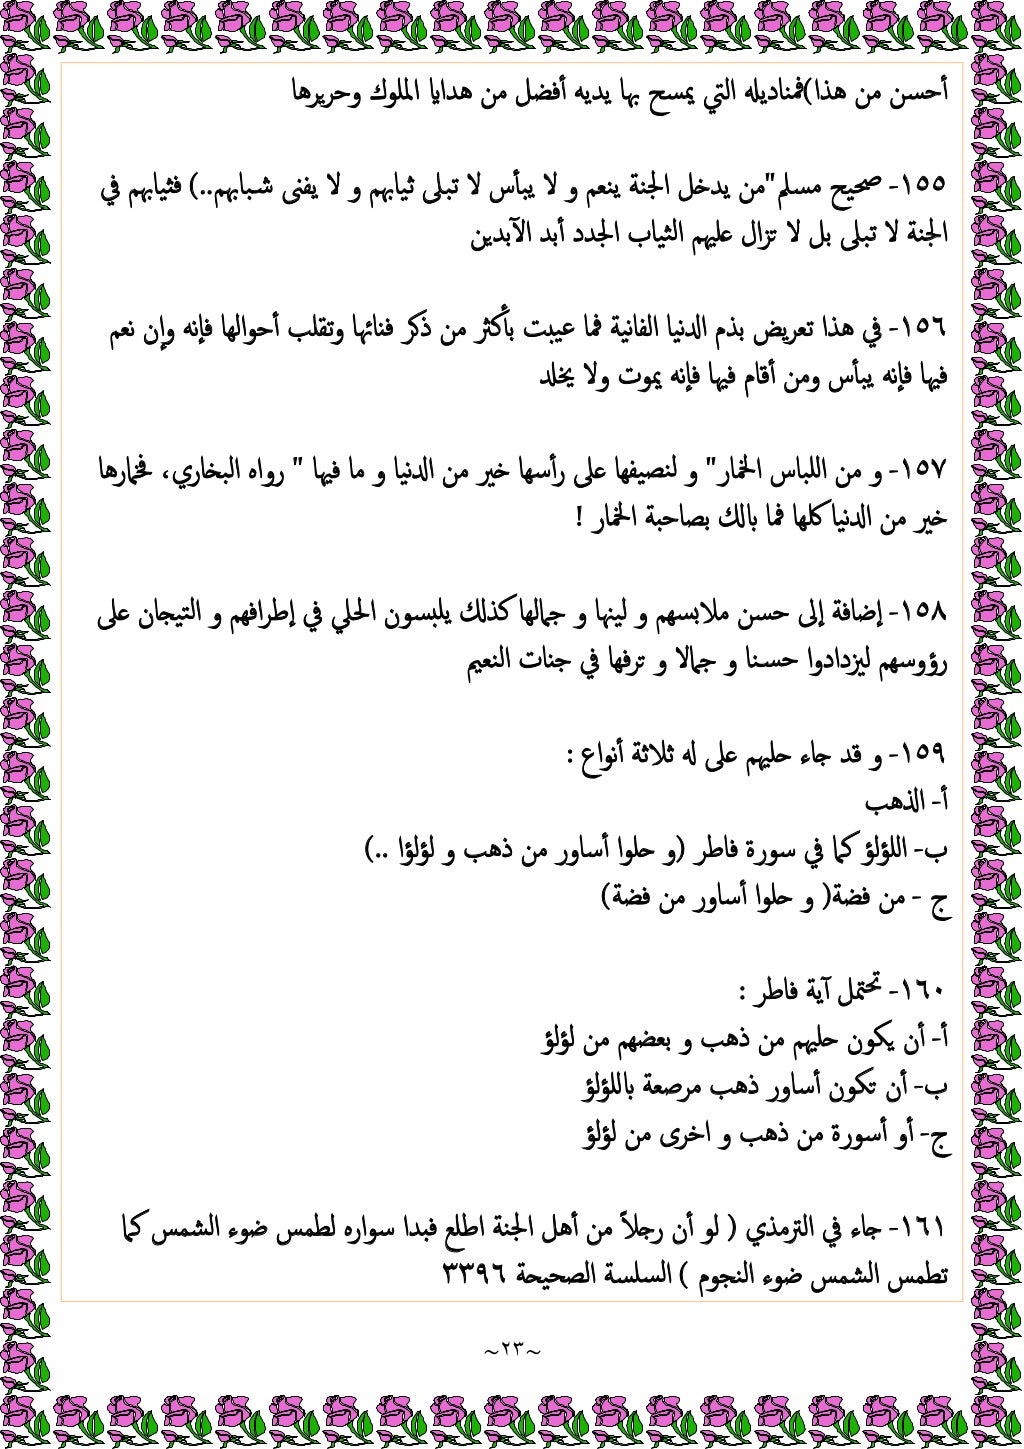 أحسن من هذا)فمناديله التي يمسح بها يديه أفضل من هدايا الملوك وحريرها
١٥٥- صحيح مسلم"من يدخل الجنة ينعم و لا يبأس لا تبلى ثيابهم و لا يفنى شبابهم..) فثيابهم في
الجنة لا تبلى بل لا تزال عليهم الثياب الجدد أبد الآبدين
١٥٦- في هذا تعريض بذم الدنيا الفانية فما عيبت بأكثر من ذكر فنائها وتقلب أحوالها فإنه وإن نعم
فيها فإنه يبأس ومن أقام فيها فإنه يموت ولا يخلد
١٥٧- و من اللباس الخمار" و لنصيفها على رأسها خير من الدنيا و ما فيها " رواه البخاري، فخمارها
خير من الدنياكلها فما بالك بصاحبة الخمار !
١٥٨- إضافة إلى حسن ملابسهم و لينها و جمالها كذلك يلبسون الحلي في إطرافهم و التيجان على
رؤوسهم ليزدادوا حسنا و جمالا و ترفها في جنات النعيم
١٥٩- و قد جاء حليهم على له ثلاثة أنواع :
أ- الذهب
ب- اللؤلؤ كما في سورة فاطر (و حلوا أساور من ذهب و لؤلؤا ..)
ج - من فضة( و حلوا أساور من فضة)
١٦٠- تحتمل آية فاطر :
أ- أن يكون حليهم من ذهب و بعضهم من لؤلؤ
ب- أن تكون أساور ذهب مرصعة باللؤلؤ
ج- أو أسورة من ذهب و اخرى من لؤلؤ
١٦١- جاء في الترمذي ( لو أن رجلاً من أهل الجنة اطلع فبدا سواره لطمس ضوء الشمس كما
تطمس الشمس ضوء النجوم ) السلسة الصحيحة ٣٣٩٦
~٢٣~